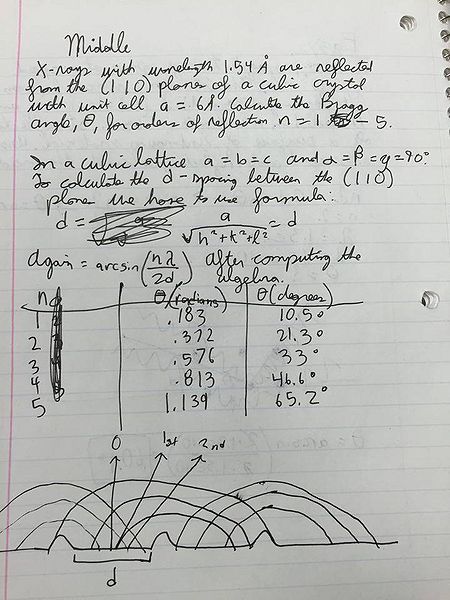 Middle
X-rays with wavelength 1.54 Å are reflected
from the (110) planes of a cubic crystal
with unit cell a = 6Å. Calculate the Bragg
angle, θ, for orders of reflection n = 1 - 5.
In a cubic lattice a = b = c and α = β = γ = 90°
To calculate the d-spacing between the (110)
plane we have to use formula:
d = a/√(h² + k² + l²) = d
Again = arcsin(nλ/2d) After computing the
algebra.
n θ(radians) θ(degrees)
1 .183 10.5°
2 .372 21.3°
3 .576 33°
4 .813 46.6°
5 1.139 65.2°
0 1st 2nd
d